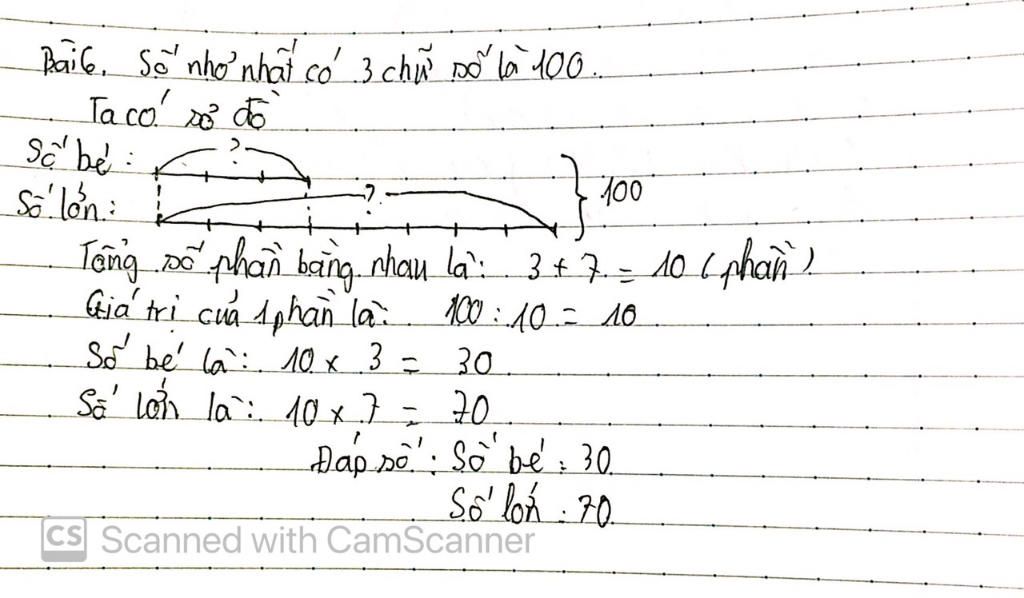 Bài 6. Số nhỏ nhất có 3 chữ số là 100.
Ta có sơ đồ
Số bé: ?
Số lớn: ? 100
Tổng số phần bằng nhau là: 3 + 7 = 10 (phần)
Giá trị của 1 phần là: 100 : 10 = 10
Số bé là: 10 x 3 = 30
Số lớn là: 10 x 7 = 70
Đáp số: Số bé: 30
Số lớn: 70
CS Scanned with CamScanner